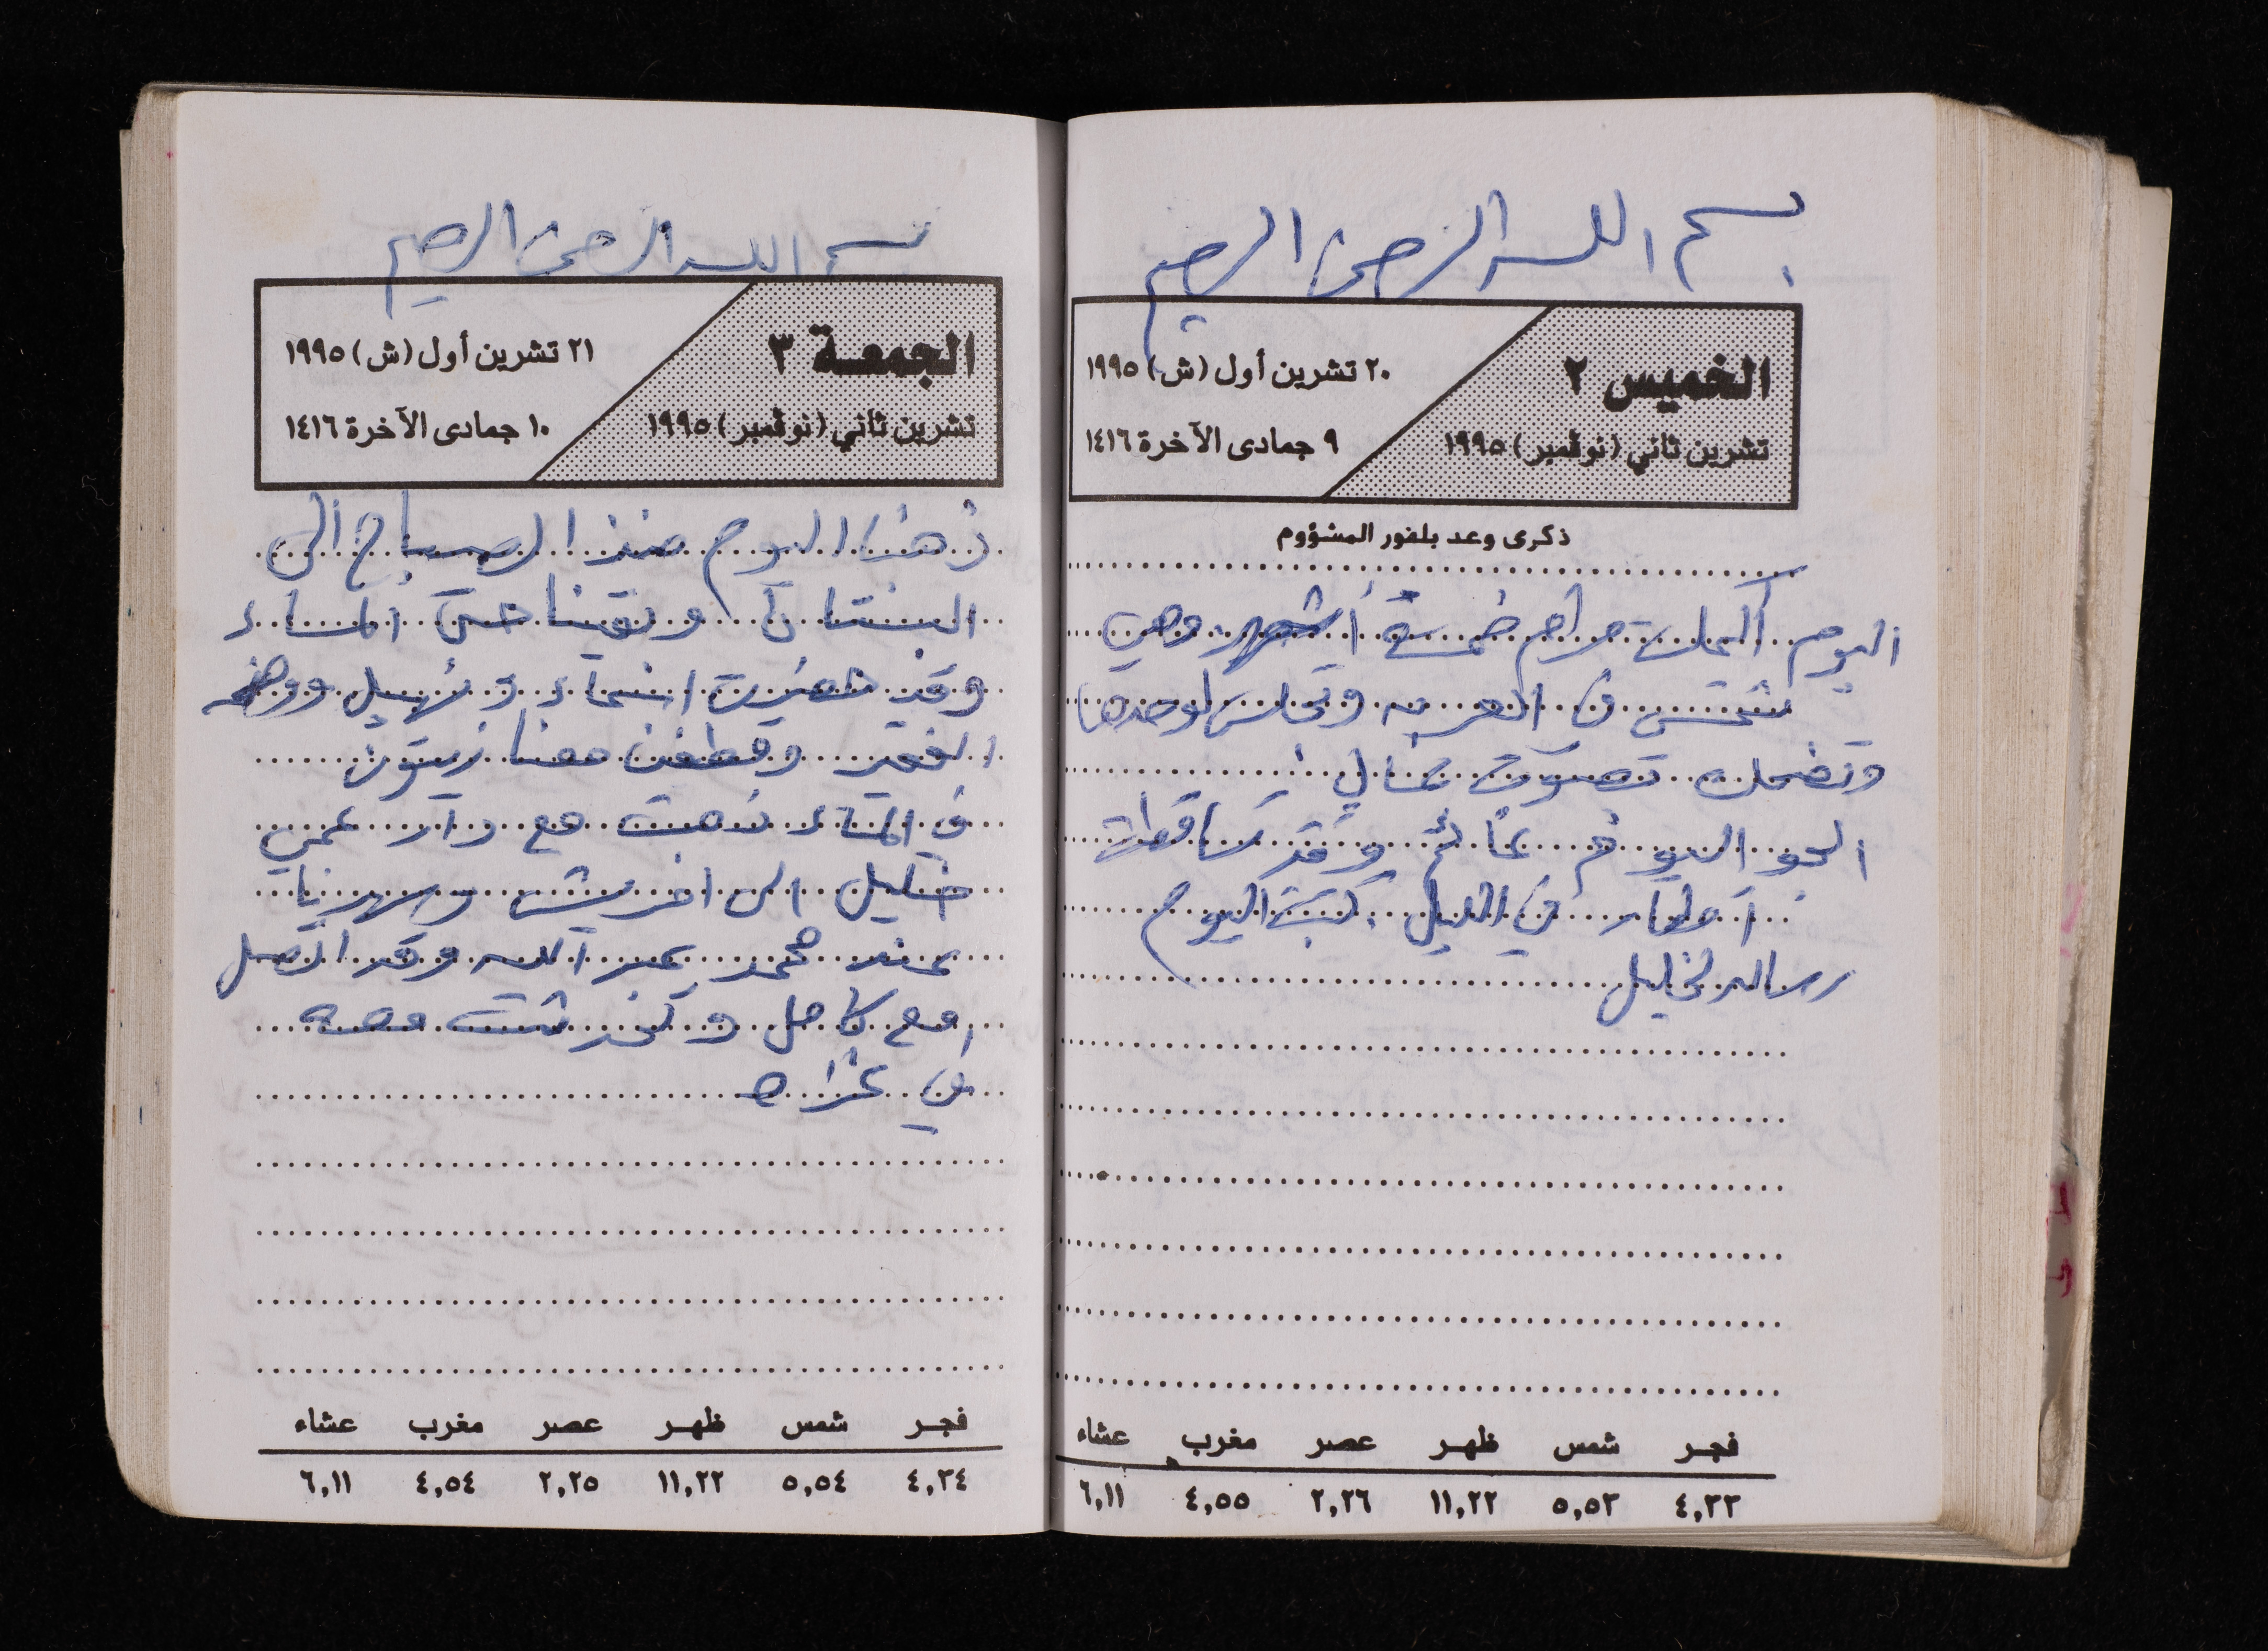 بسم الله الرحمن الرحيم
الخميس ٢
تشرين ثاني (نوڤمبر) ١٩٩٥
٢٠ تشرين أول (ش) ١٩٩٥
٩ جمادى الآخرة ١٤١٦
ذكرى وعد بلفور المشؤوم
اليوم أكملت مرام خمسة أشهر وهي
تمشي في العربه وتجلس لوحدها
وتضحك بصوت عالي
الجو اليوم غائم وقد تساقطت
أمطار في الليل. كتبت اليوم
رساله لخليل
فجر شمس ظهر عصر مغرب عشاء
٤,٣٣ ٥,٥٣ ١١,٢٢ ٢,٢٦ ٤,٥٥ ٦,١١
بسم الله الرحمن الرحيم
الجمعة ٣
تشرين ثاني (نوڤمبر) ١٩٩٥
٢١ تشرين أول (ش) ١٩٩٥
١٠ جمادى الآخرة ١٤١٦
ذهبنا اليوم منذ الصباح الى
البستان وبقينا حتى المساء
وقد حضرت اسماء و نهيل
وقطفن معنا زيتون
في المساء ذهبت مع دار عمي
خليل الى وسهرنا
عند محمد عبد الله وقد اتصل
مع كامل وتحدثت معه
فجر شمس ظهر عصر مغرب عشاء
٤,٣٤ ٥,٥٤ ١١,٢٢ ٢,٢٥ ٤,٥٤ ٦,١١